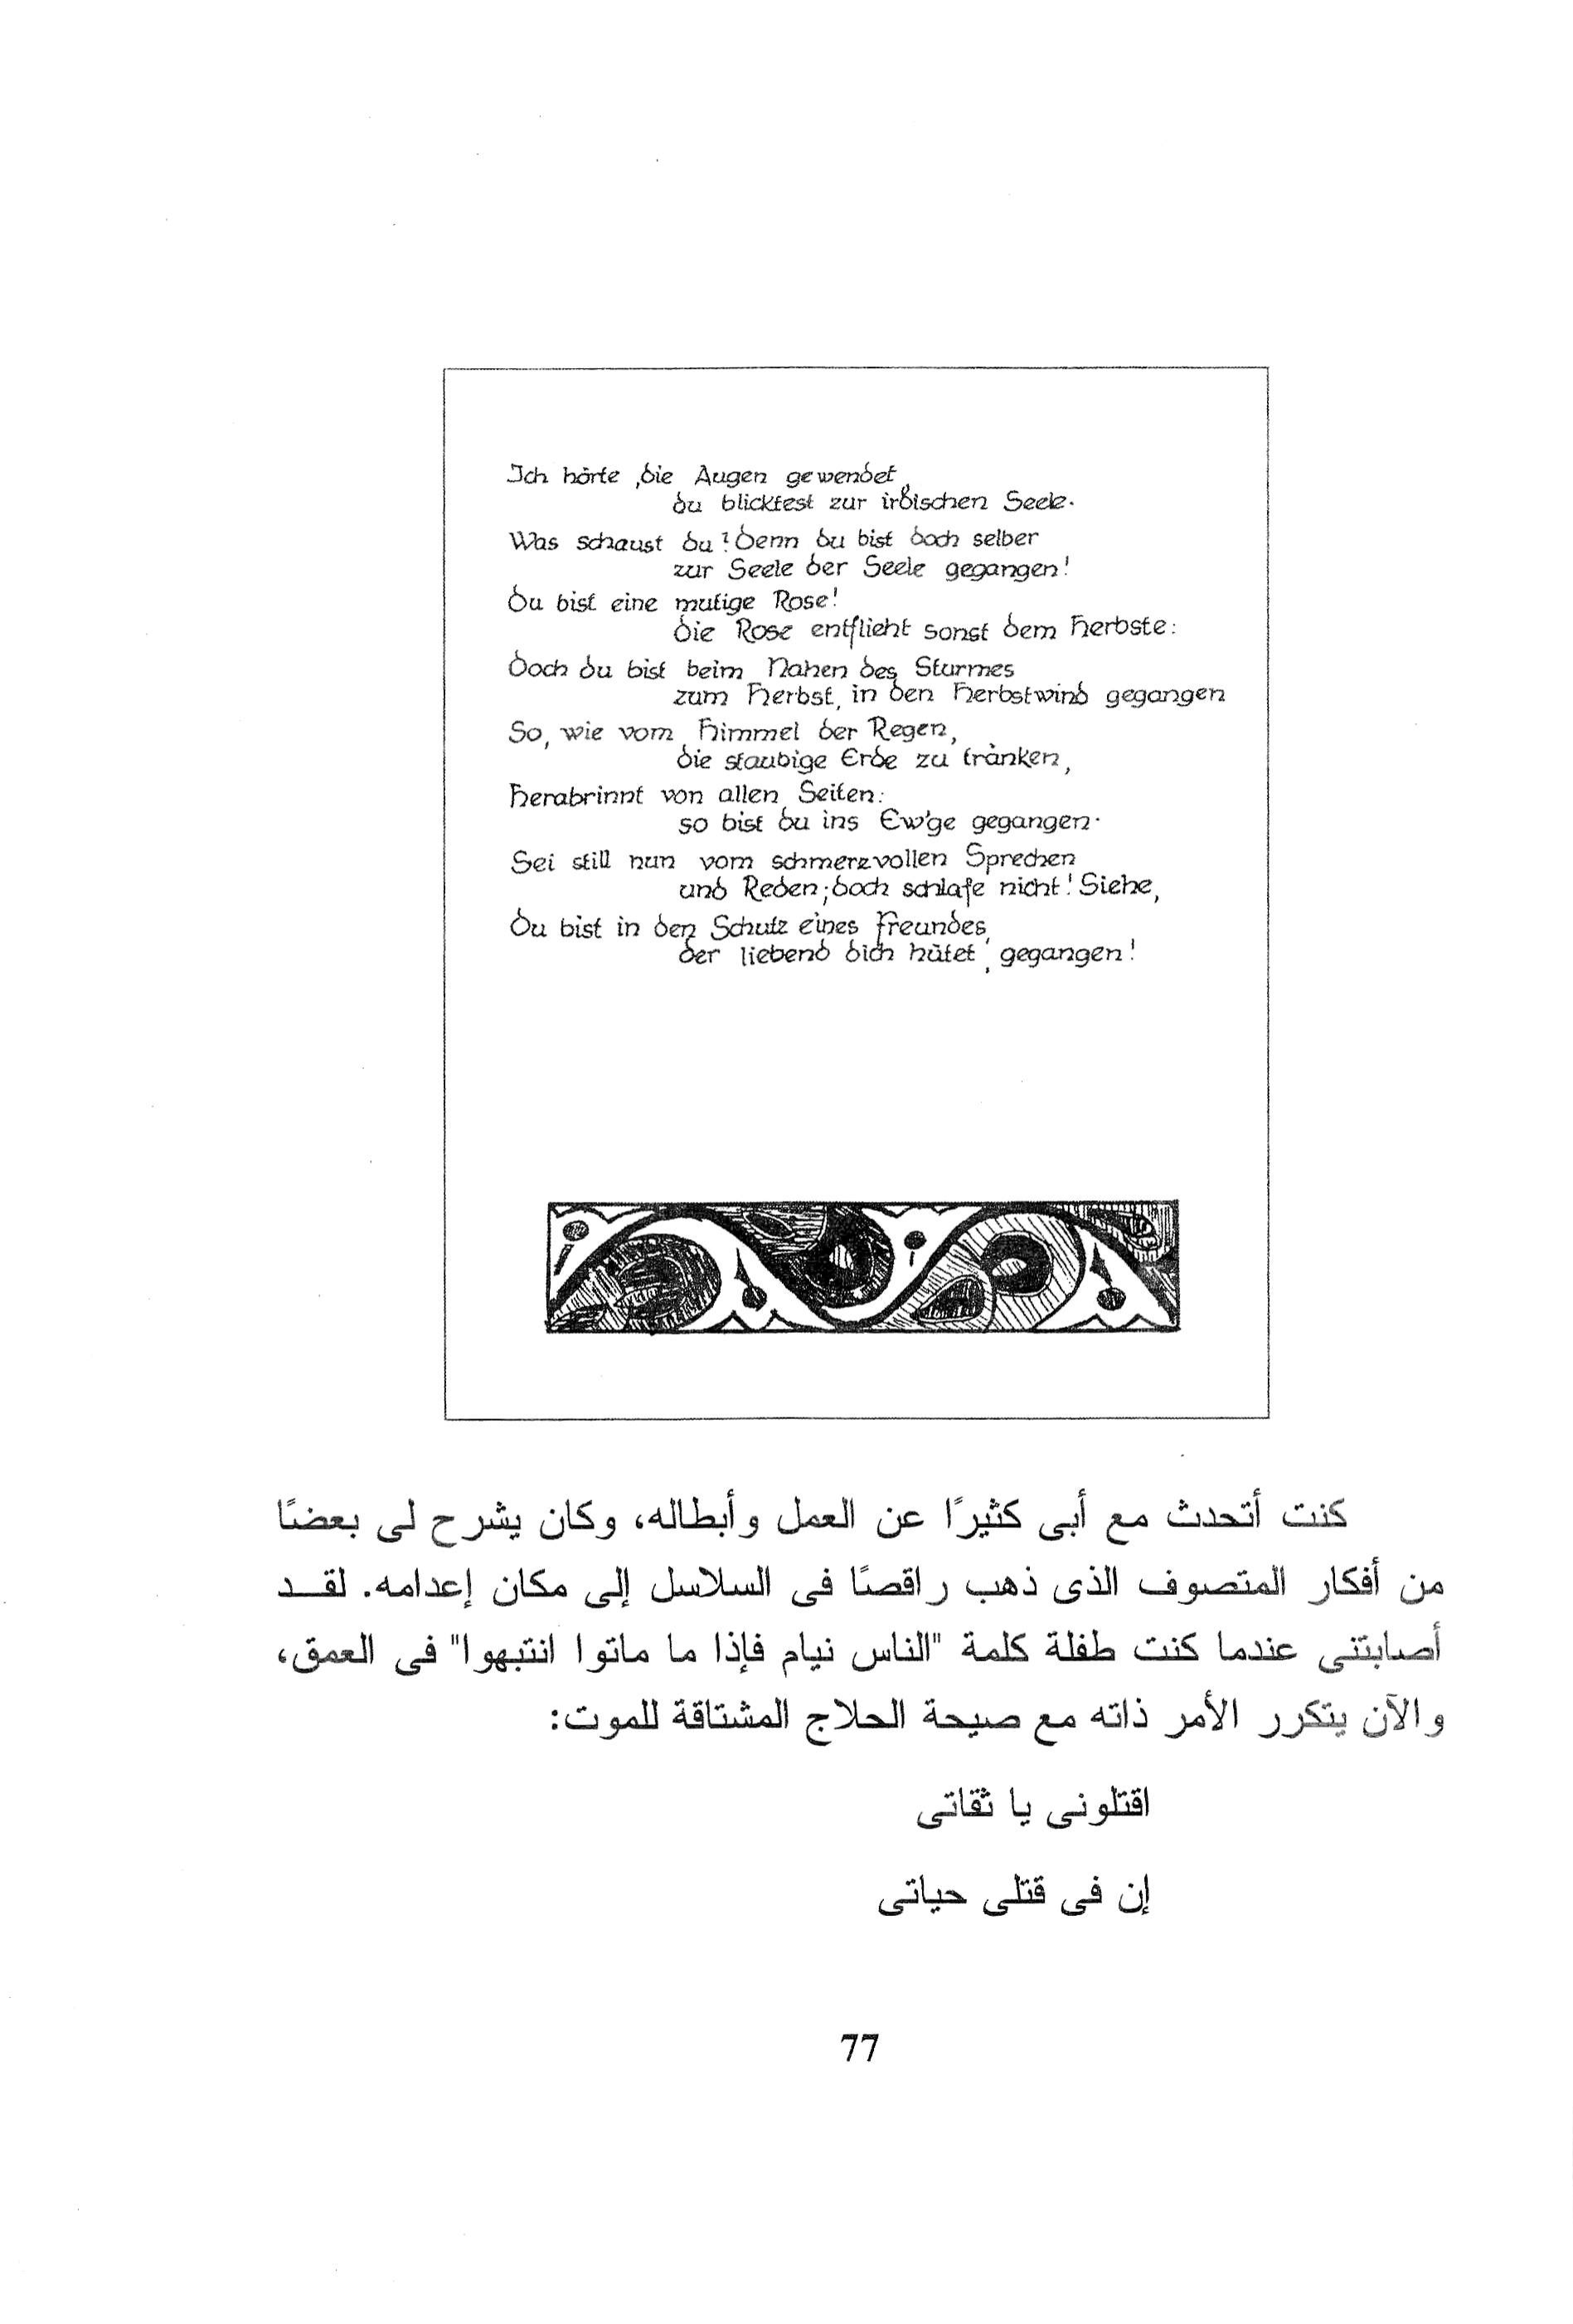 Ich hörte, die Augen gewendet,
du blicktest zur irdischen Seele.
Was schaust du? Denn du bist doch selber
zur Seele der Seele gegangen!
Du bist eine mutige Rose!
Die Rose entflieht sonst dem Herbste:
Doch du bist beim Nahen des Sturmes
zum Herbst, in den Herbstwind gegangen
So, wie vom Himmel der Regen,
die staubige Erde zu tränken,
Herabrinnt von allen Seiten:
so bist du ins Ew'ge gegangen.
Sei still nun vom schmerzvollen Sprechen
und Reden; doch schlafe nicht! Siehe,
Du bist in den Schutz eines Freundes,
der liebend dich hütet, gegangen!
كنت أتحدث مع أبى كثيرًا عن العمل وأبطاله، وكان يشرح لى بعضًا
من أفكار المتصوف الذى ذهب راقصًا فى السلاسل إلى مكان إعدامه. لقــد
أصابتنى عندما كنت طفلة كلمة "الناس نيام فإذا ما ماتوا انتبهوا" فى العمق،
والآن يتكرر الأمر ذاته مع صيحة الحلاج المشتاقة للموت:
اقتلونى يا ثقاتى
إن فى قتلى حياتى
77